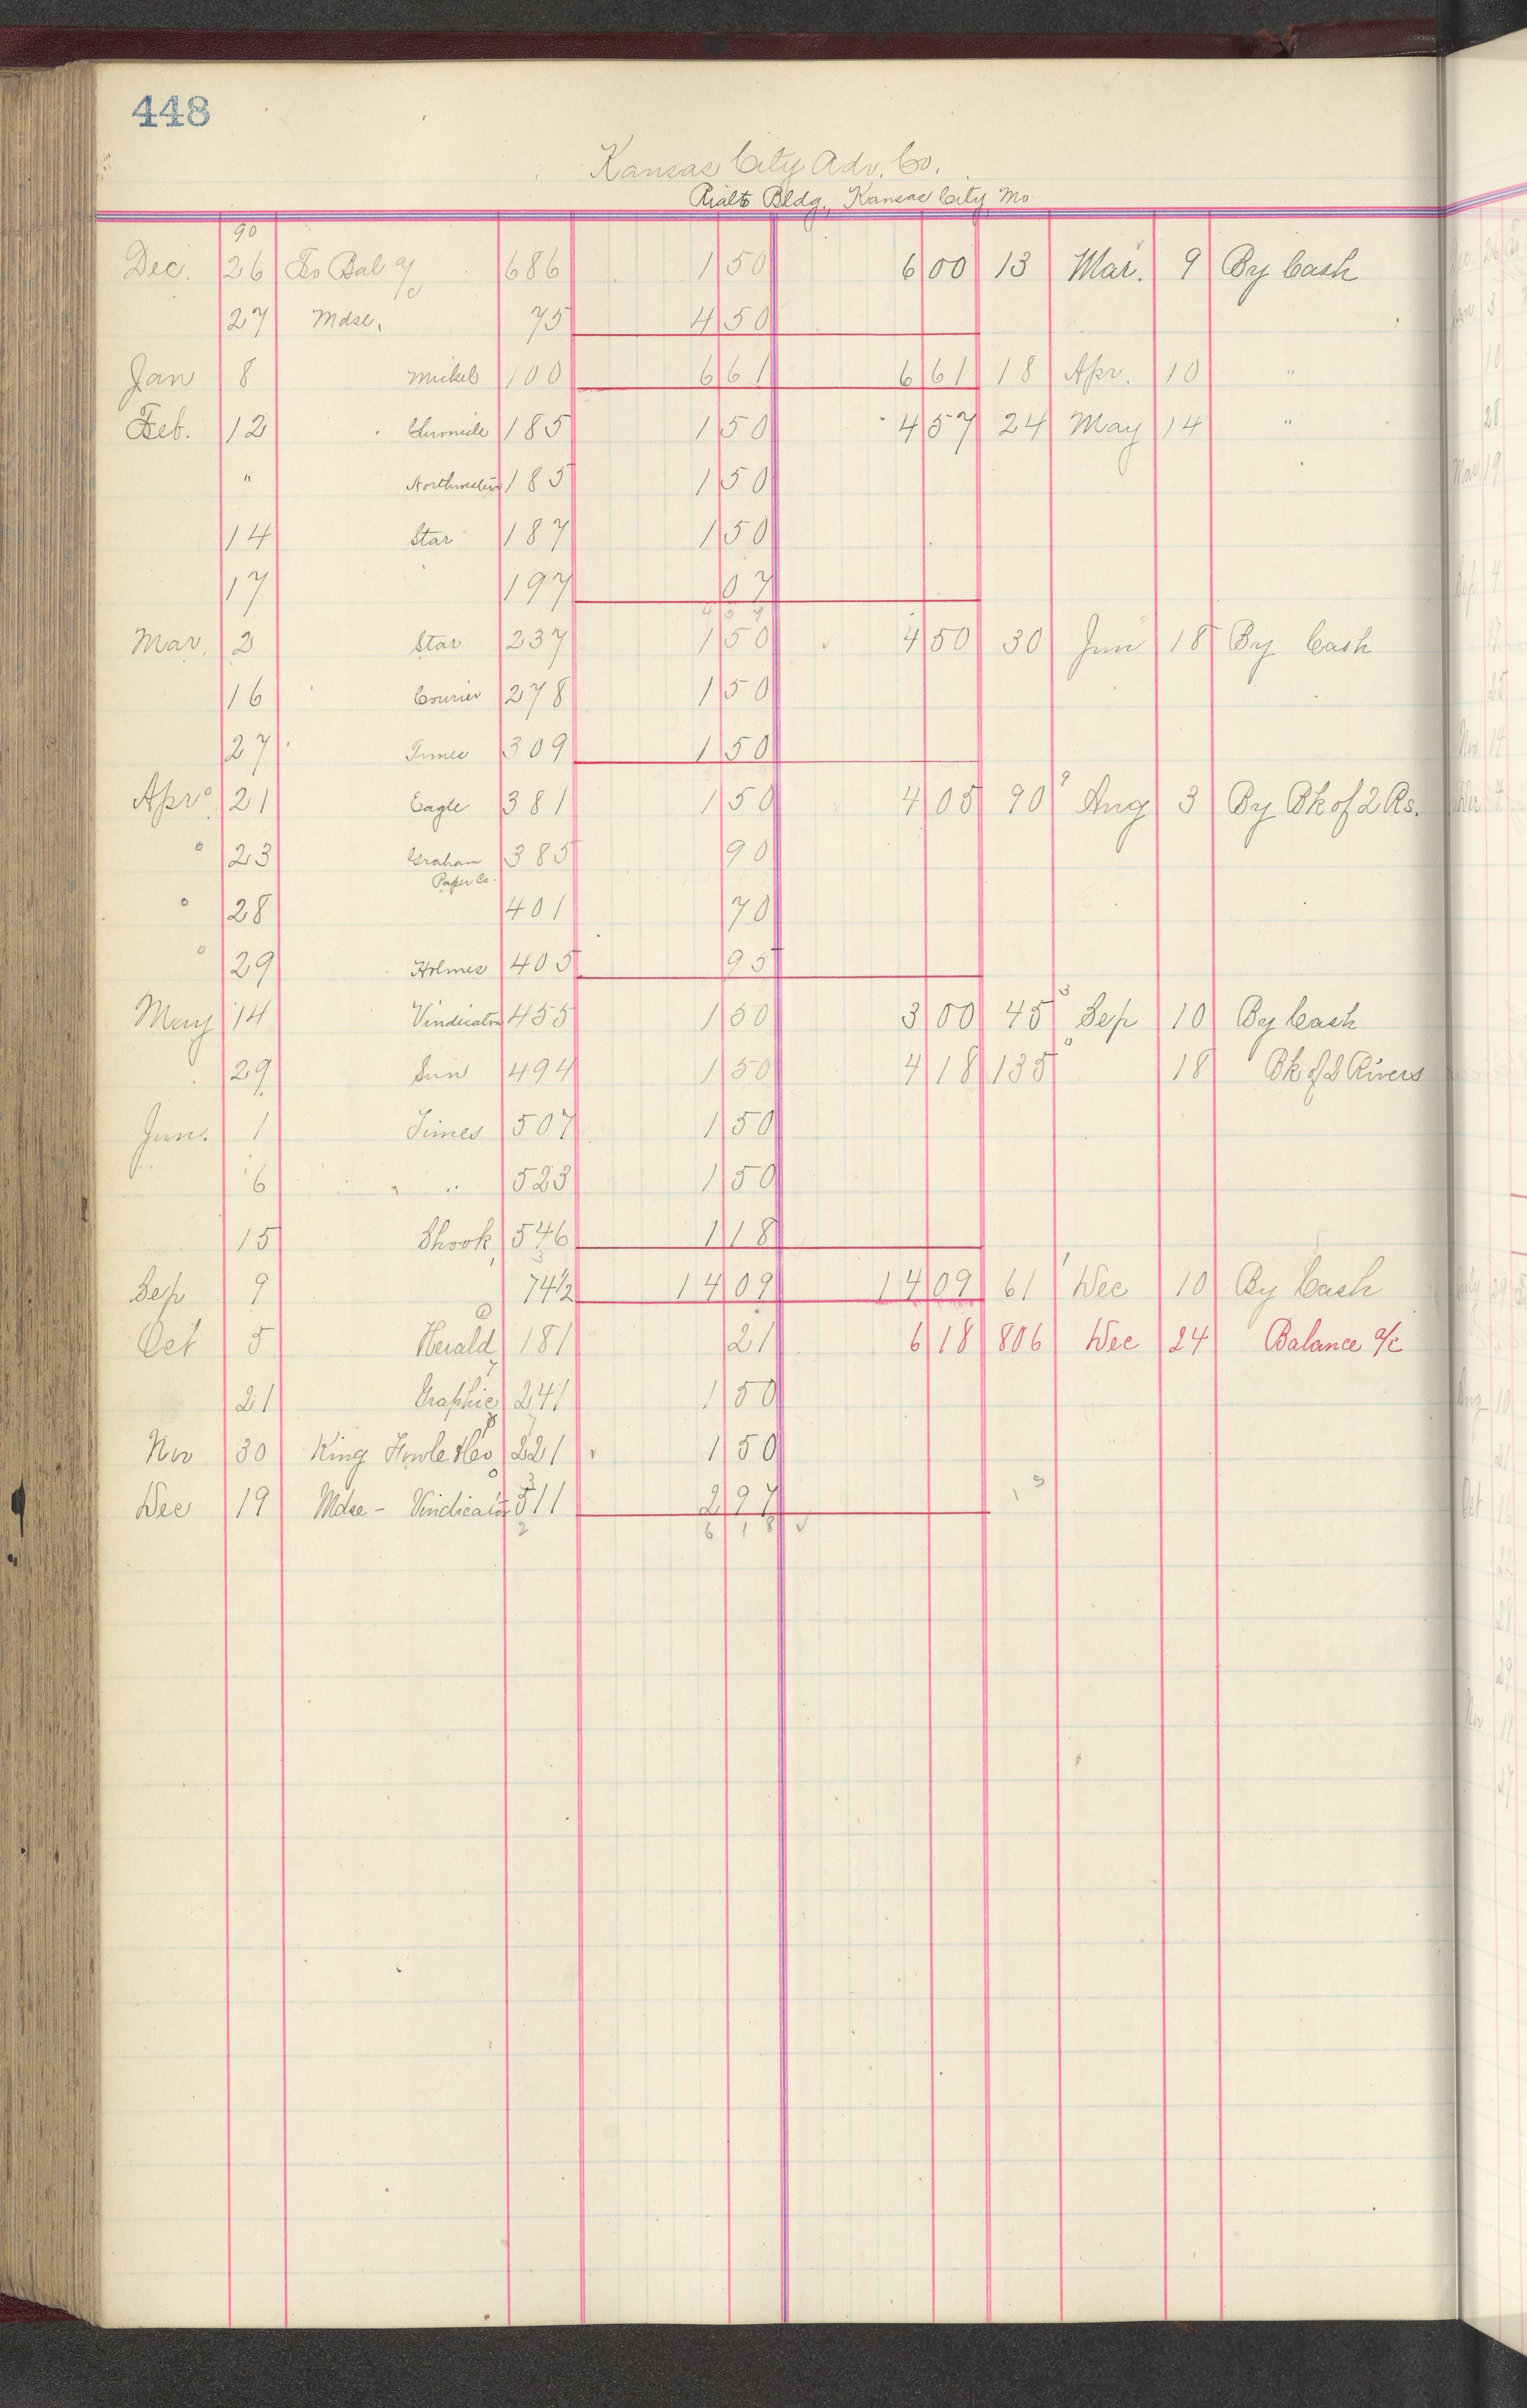 448
Kansas City Adv. Co.
Rialto Bldg., Kansas City Mo
90
Dec. 26 To Bal a/c 686 1 50 6 00 13 Mar. 9 By Cash
27 Mdse. 75 4 50
Jan 8 Mickels 100 6 61 6 61 18 Apr. 10 "
Feb. 12 Chronicle 185 1 50 4 57 24 May 14 "
" Northwestern 185 1 50
14 Star 187 1 50
17 197 07
4 5 7
Mar. 2 Star 237 1 50 4 50 30 Jun 18 By Cash
16 Courier 278 1 50
27 Times 309 1 50
Apr 21 Eagle 381 1 50 4 05 90 Aug 3 By Bk of 2 Rs.
23 Graham 385 90
Paper Co.
28 401 70
29 Holmes 405 95
May 14 Vindicator 455 1 50 3 00 45 Sep 10 By Cash
29 Sun 494 1 50 4 18 135 18 Bk of 2 Rivers
Jun. 1 Times 507 1 50
6 " 523 1 50
15 Shook 546 1 18
Sep 9 742 14 09 14 09 61 Dec 10 By Cash
Oct 5 Herald 181 21 6 18 806 Dec 24 Balance a/c
21 Graphic 241 1 50
Nov 30 King Fowle & Co 221 1 50
Dec 19 Mdse - Vindicator 311 2 97
6 1 8